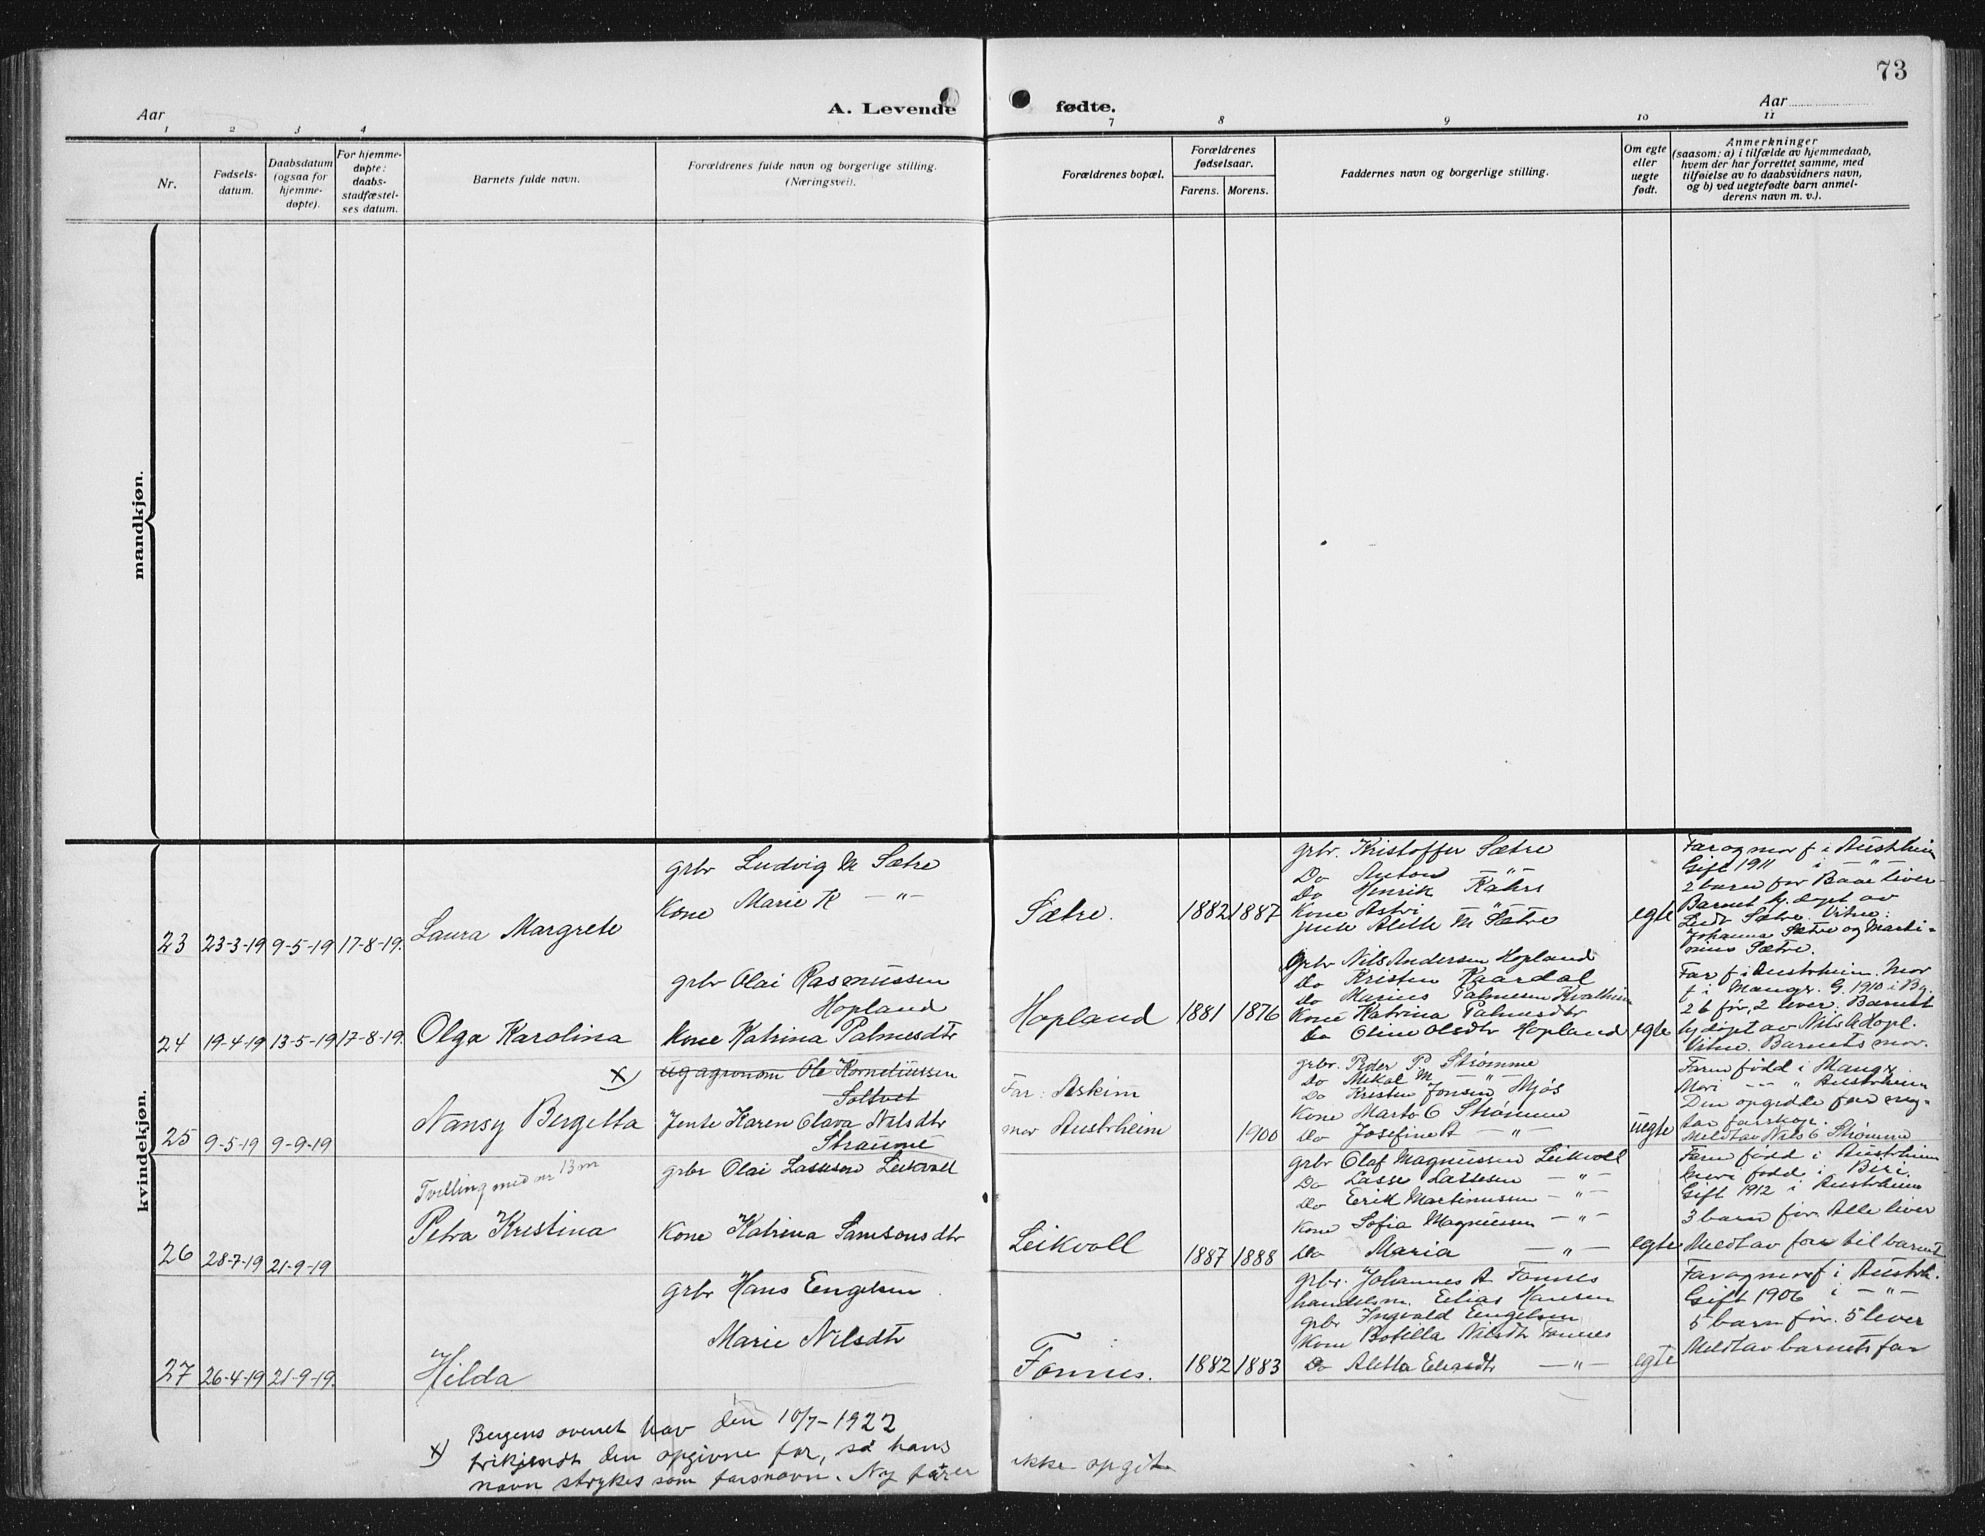 73
Aar
A. Levende fødte.
Aar
1 2 3 4 7 8 9 10 11
Nr.
Fødsels-
datum.
Daabsdatum
(ogsaa for
hjemme-
døpte).
For hjemme-
døpte:
daabs-
stadfæstel-
ses datum.
Barnets fulde navn.
Forældrenes fulde navn og borgerlige stilling.
(Næringsvei).
Forældrenes bopæl.
Forældrenes
fødselsaar.
Farens. Morens.
Faddernes navn og borgerlige stilling.
Om egte
eller
uegte
født.
Anmerkninger
(saasom: a) i tilfælde av hjemmedaab,
hvem der har forrettet samme, med
tilføielse av to daabsvidners navn,
og b) ved uegtefødte barn anmel-
derens navn m. v.).
mandkjøn.
kvindekjøn.
23 23-3-19 9-5-19 17-8-19.
Laura Margrete
grbr Ludvig M Sætre
Kone Marie K —"—
Sætre.
1882 1887
grbr. Kristoffer Sætre
Do Anton —"—
Do Henrik Kahrs
Kone Astri "
Jente Aleth M Sætre
egte
Far og mor f i Austrheim
Gift 1911 i —"—
2 barn før Baae lever
Barnet hj. døpt av
Sætre. Vitne:
Johanna Sætre og Marti-
nius Sætre.
24 19-4-19 13-5-19 17-8-19.
Olga Karolina
grbr Olai Rasmussen
Hopland
Kone Katrina Palmesdtr
Hopland
1881 1876
Grbr Nils Andersen Hopland
Do Kristen Kaardal
Do Marius Palmesen Kvalheim
Kone Katrina Palmesdtr
Do Oline Olsdtr Hopland
egte
Far f i Austrheim. Mor
f i Manger. G. 1910 i Bg.
2 b før, 2 lever. Barnet
hj døpt av Nils A Hopl.
Vitne. Barnets mor.
25 9-5-19 9-9-19
x)
Nansy Bergetta
ug agronom Ole Korneliussen
Soltvet
Jente Karen Olava Nilsdtr
Straume
Far: Askim
mor Austrheim
1900
grbr. Peder P. Strømme
Do Mikal M —"—
Do Kristen Jonsen Mjøs
Kone Marta O Strømme
Do Josefine A —"—
uegte
Faren fødd i Manger
Mori —"— " Austrheim
Den opgitte far neg-
tar farskap.
Meldt av Nils O Strømme
26 28-7-19 21-9-19
Tvilling med nr 13 m
Petra Kristina
grbr Olai Lassesen Leikvoll
Kone Katrina Samsonsdtr
Leikvoll
1887 1888
grbr Olaf Magnussen Leikvoll
Do Lasse Lassesen —"—
Do Erik Martinusen —"—
Kone Sofia Magnussen —"—
Do Maria —"—
egte
Faren fødd i Austrheim
Mori fødd i Biri
Gift 1912 i Austrheim
3 barn før. Alle liver
Meldt av far til barnet
27 26-4-19 21-9-19.
Hilda
grbr Hans Engelsen
Marie Nilsdtr
Fonnes.
1882 1883
grbr. Johannes A Fonnes
handelsm. Elias Hansen
grbr Ingvald Engelsen
Kone Botilla Nilsdtr Fonnes
Do Aletta Eliasdtr —"—
egte
Far og mor f i Austrh.
Gift 1906 i —"—
5 barn før. 5 lever
Meldt av barnets far
x) Bergens overret hav den 10/7-1922
frikjendt den opgivne far, så hans
navn strykes som farsnavn. Ny far er
ikke opgit